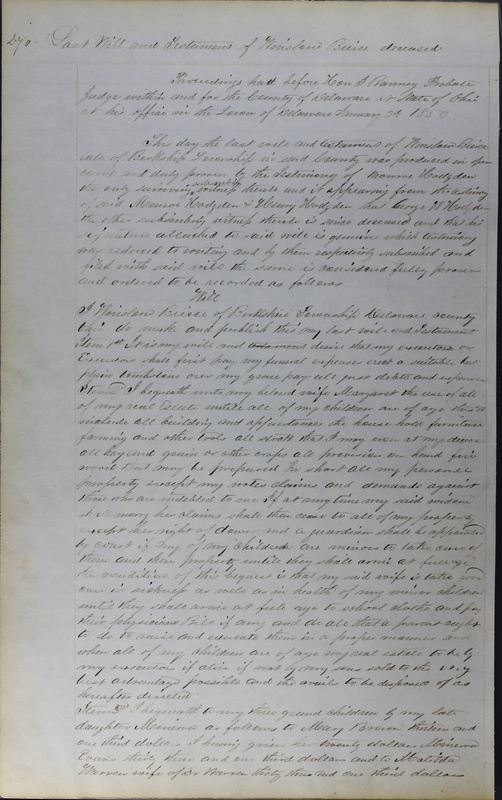 270 Last Will and Testament of Winslow Bierce deceased
Proceedings had before Hon Ranney Probate
Judge within and for the County of Delaware at State of Ohio
at his office in the Town of Delaware January
This day the last will and testament of Winslow Bierce
late of Berkshire Township in said County was produced in open
court and duly proven by the testimony of Monroe Hodgden
the only surviving subscribing witness hereto and it appearing from the testimony
of said Monroe Hodgden & Henry Hodgden that George W Hodgden
the other subscribing witness thereto is since deceased and that his
signature attached to said will is genuine which testimony
was reduced to writing and by them respectively subscribed and
filed with said will the same is considered fully proven
and ordered to be recorded as follows
Will
I Winslow Bierce of Berkshire Township Delaware county
Ohio do make and publish this my last will and testament
Item 1st It is my will and desire that my executors or
Executor shall first pay my funeral expenses erect a suitable but
plain tombstone over my grave pay all just debts and expenses
Item 2 I bequeath unto my beloved wife Margaret the use of all
of my real Estate untill all of my children are of age this to
include all building and appurtances the house hold furniture
farming and other tools all stock that I may own at my decease
all hay and grain or other crops all provision on hand fire
wood that may be prepared In short all my personal
property except my notes claims and demands against
those who are indebted to me If at any time my said widow
marry her claims shall then cease to all of my property
except her right of dower and a guardian shall be appointed
by court if any of my children are minors to take care of
them and their property untill they shall arrive at full age
the condition of this bequest is that my said wife is to take good
care in sickness as well as in health of my minor children
untill they shall arrive at full age to school clothe and pay
their physicians bill if any and do all that a parent ought
to do to raise and educate them in a proper manner and
when all of my children are of age my real estate to be by
my executor if alive if not by my sons sold to the very
best advantage possible and the avails to be disposed of as
hereafter directed
Item 3 I bequeath to my three grand children by my late
daughter Minerva as follows to Mary Brown thirteen and
one third dollars I having given her twenty dollars Minerva
thirty three and one third dollars and to Matilda
Warren wife of Dr Warren thirty three and one third dollars